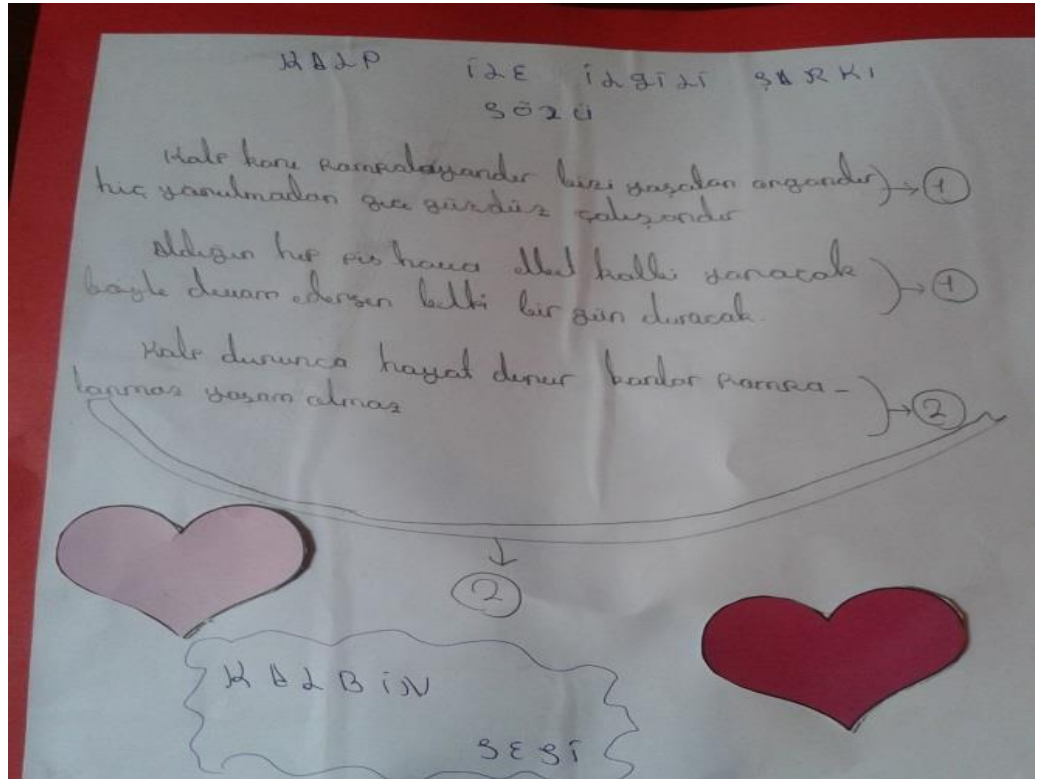 KALP İLE İLGİLİ ŞARKI
SÖZÜ
Kalp kanı pompalayandır bizi yaşatan organdır → 1
hiç yanılmadan gece gündüz çalışandır
Aldığın hep pis hava elbet kalbi yanacak → 1
böyle devam edersen belki bir gün duracak.
Kalp durunca hayat donur kanlar pompa-
lanmaz yaşam olmaz → 2
2
KALBİN
SESİ